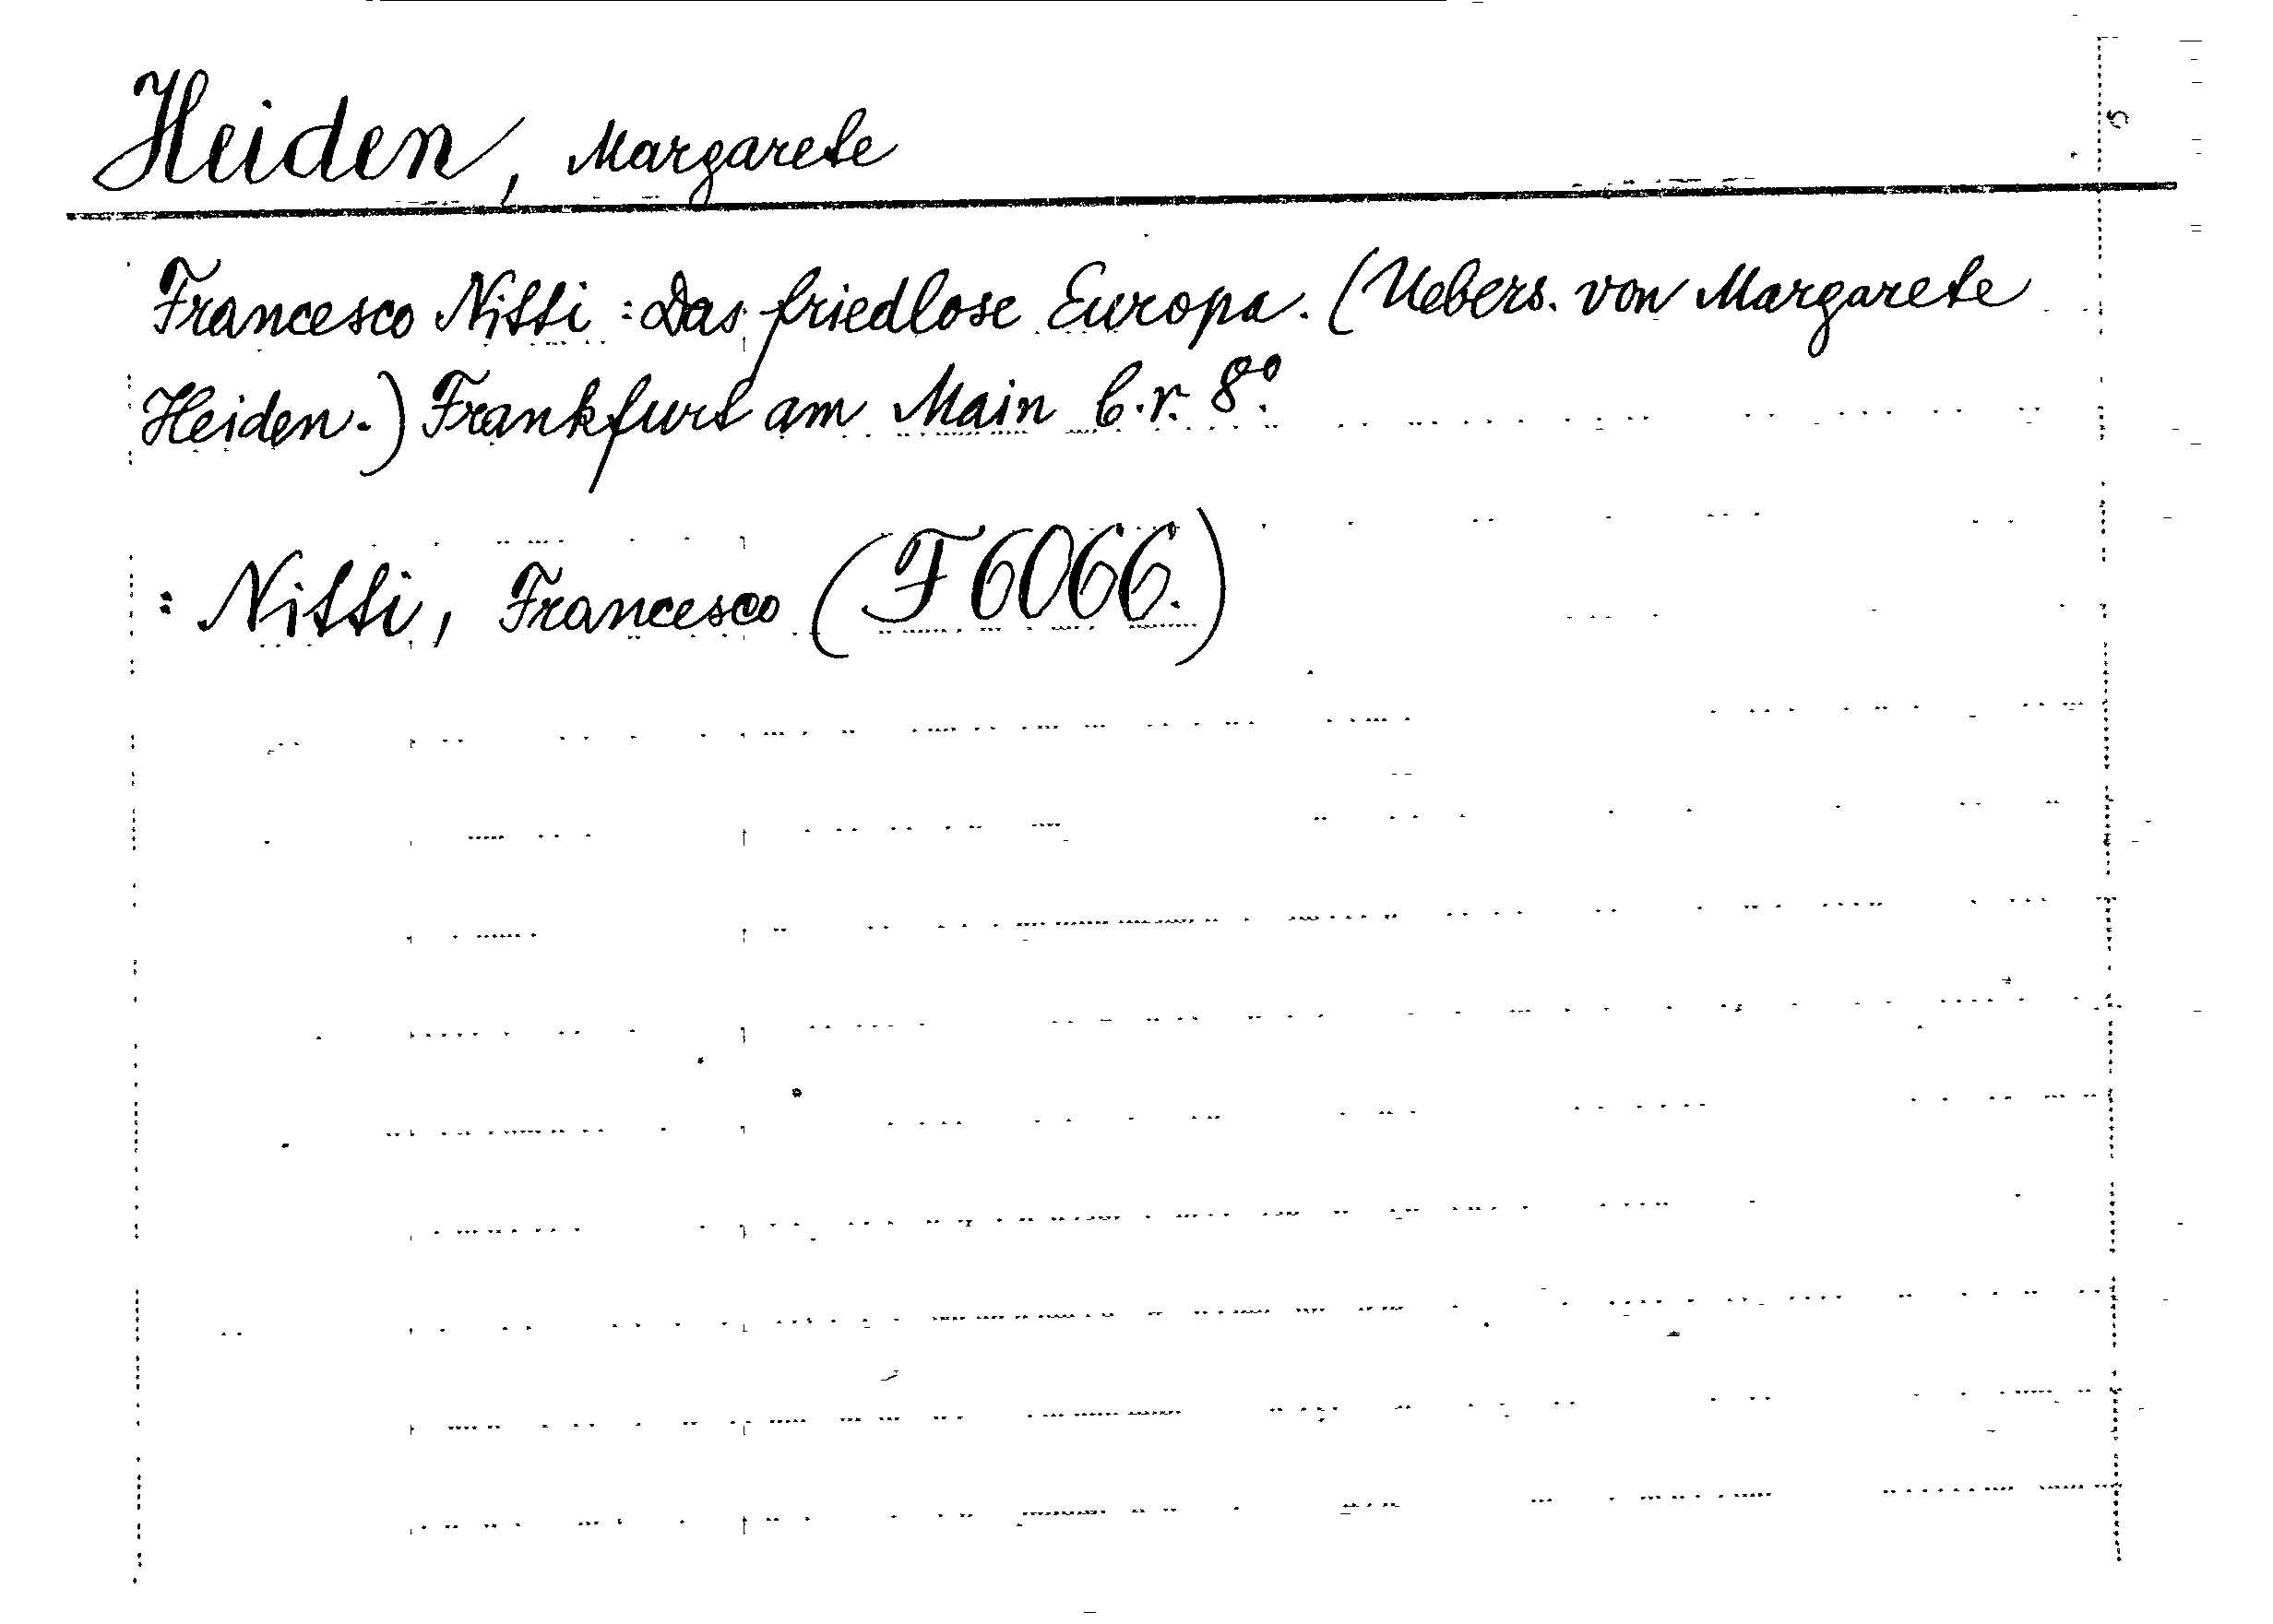 Heiden, Margarete
Francesco Nitti : Das friedlose Europa. (Uebers. von Margarete
Heiden.) Frankfurt am Main b.r. 8°.
: Nitti, Francesco (F 6066.)